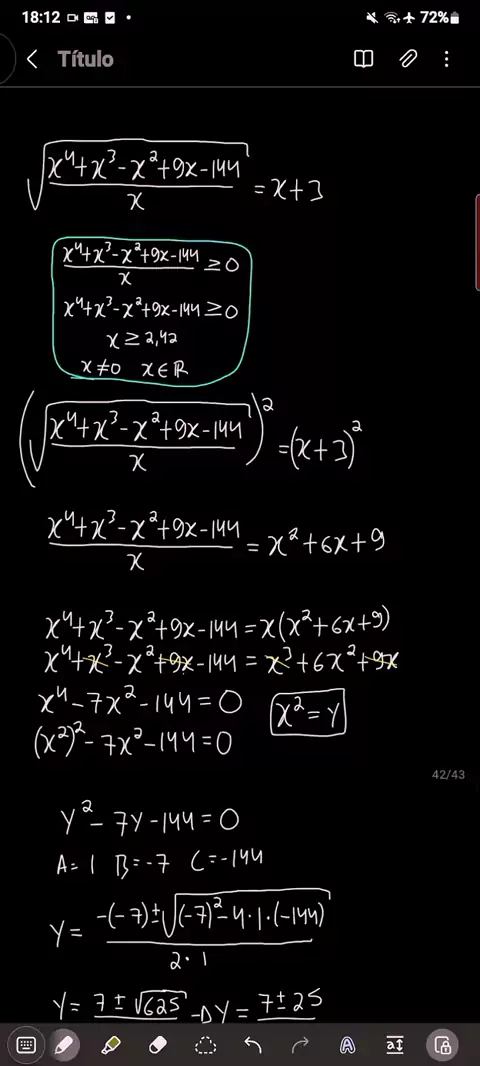 18:12 72%
Título
√((x⁴+x³-x²+9x-144)/x) = x+3
(x⁴+x³-x²+9x-144)/x ≥ 0
x⁴+x³-x²+9x-144 ≥ 0
x ≥ 2,42
x≠0 x∈ℝ
(√((x⁴+x³-x²+9x-144)/x))² = (x+3)²
(x⁴+x³-x²+9x-144)/x = x²+6x+9
x⁴+x³-x²+9x-144 = x(x²+6x+9)
x⁴+x³-x²+9x-144 = x³+6x²+9x
x⁴-7x²-144=0
x²=Y
(x²)²-7x²-144=0
42/43
Y²-7Y-144=0
A=1 B=-7 C=-144
Y = (-(-7)±√((-7)²-4·1·(-144)))/(2·1)
Y = 7±√625 → Y = 7±25